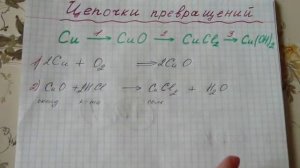 Цепочки превращений
Cu 1→ CuO 2→ CuCl₂ 3→ Cu(OH)₂
1) 2Cu + O₂ = 2CuO
2) CuO + 2HCl → CuCl₂ + H₂O
оксид к-та соль